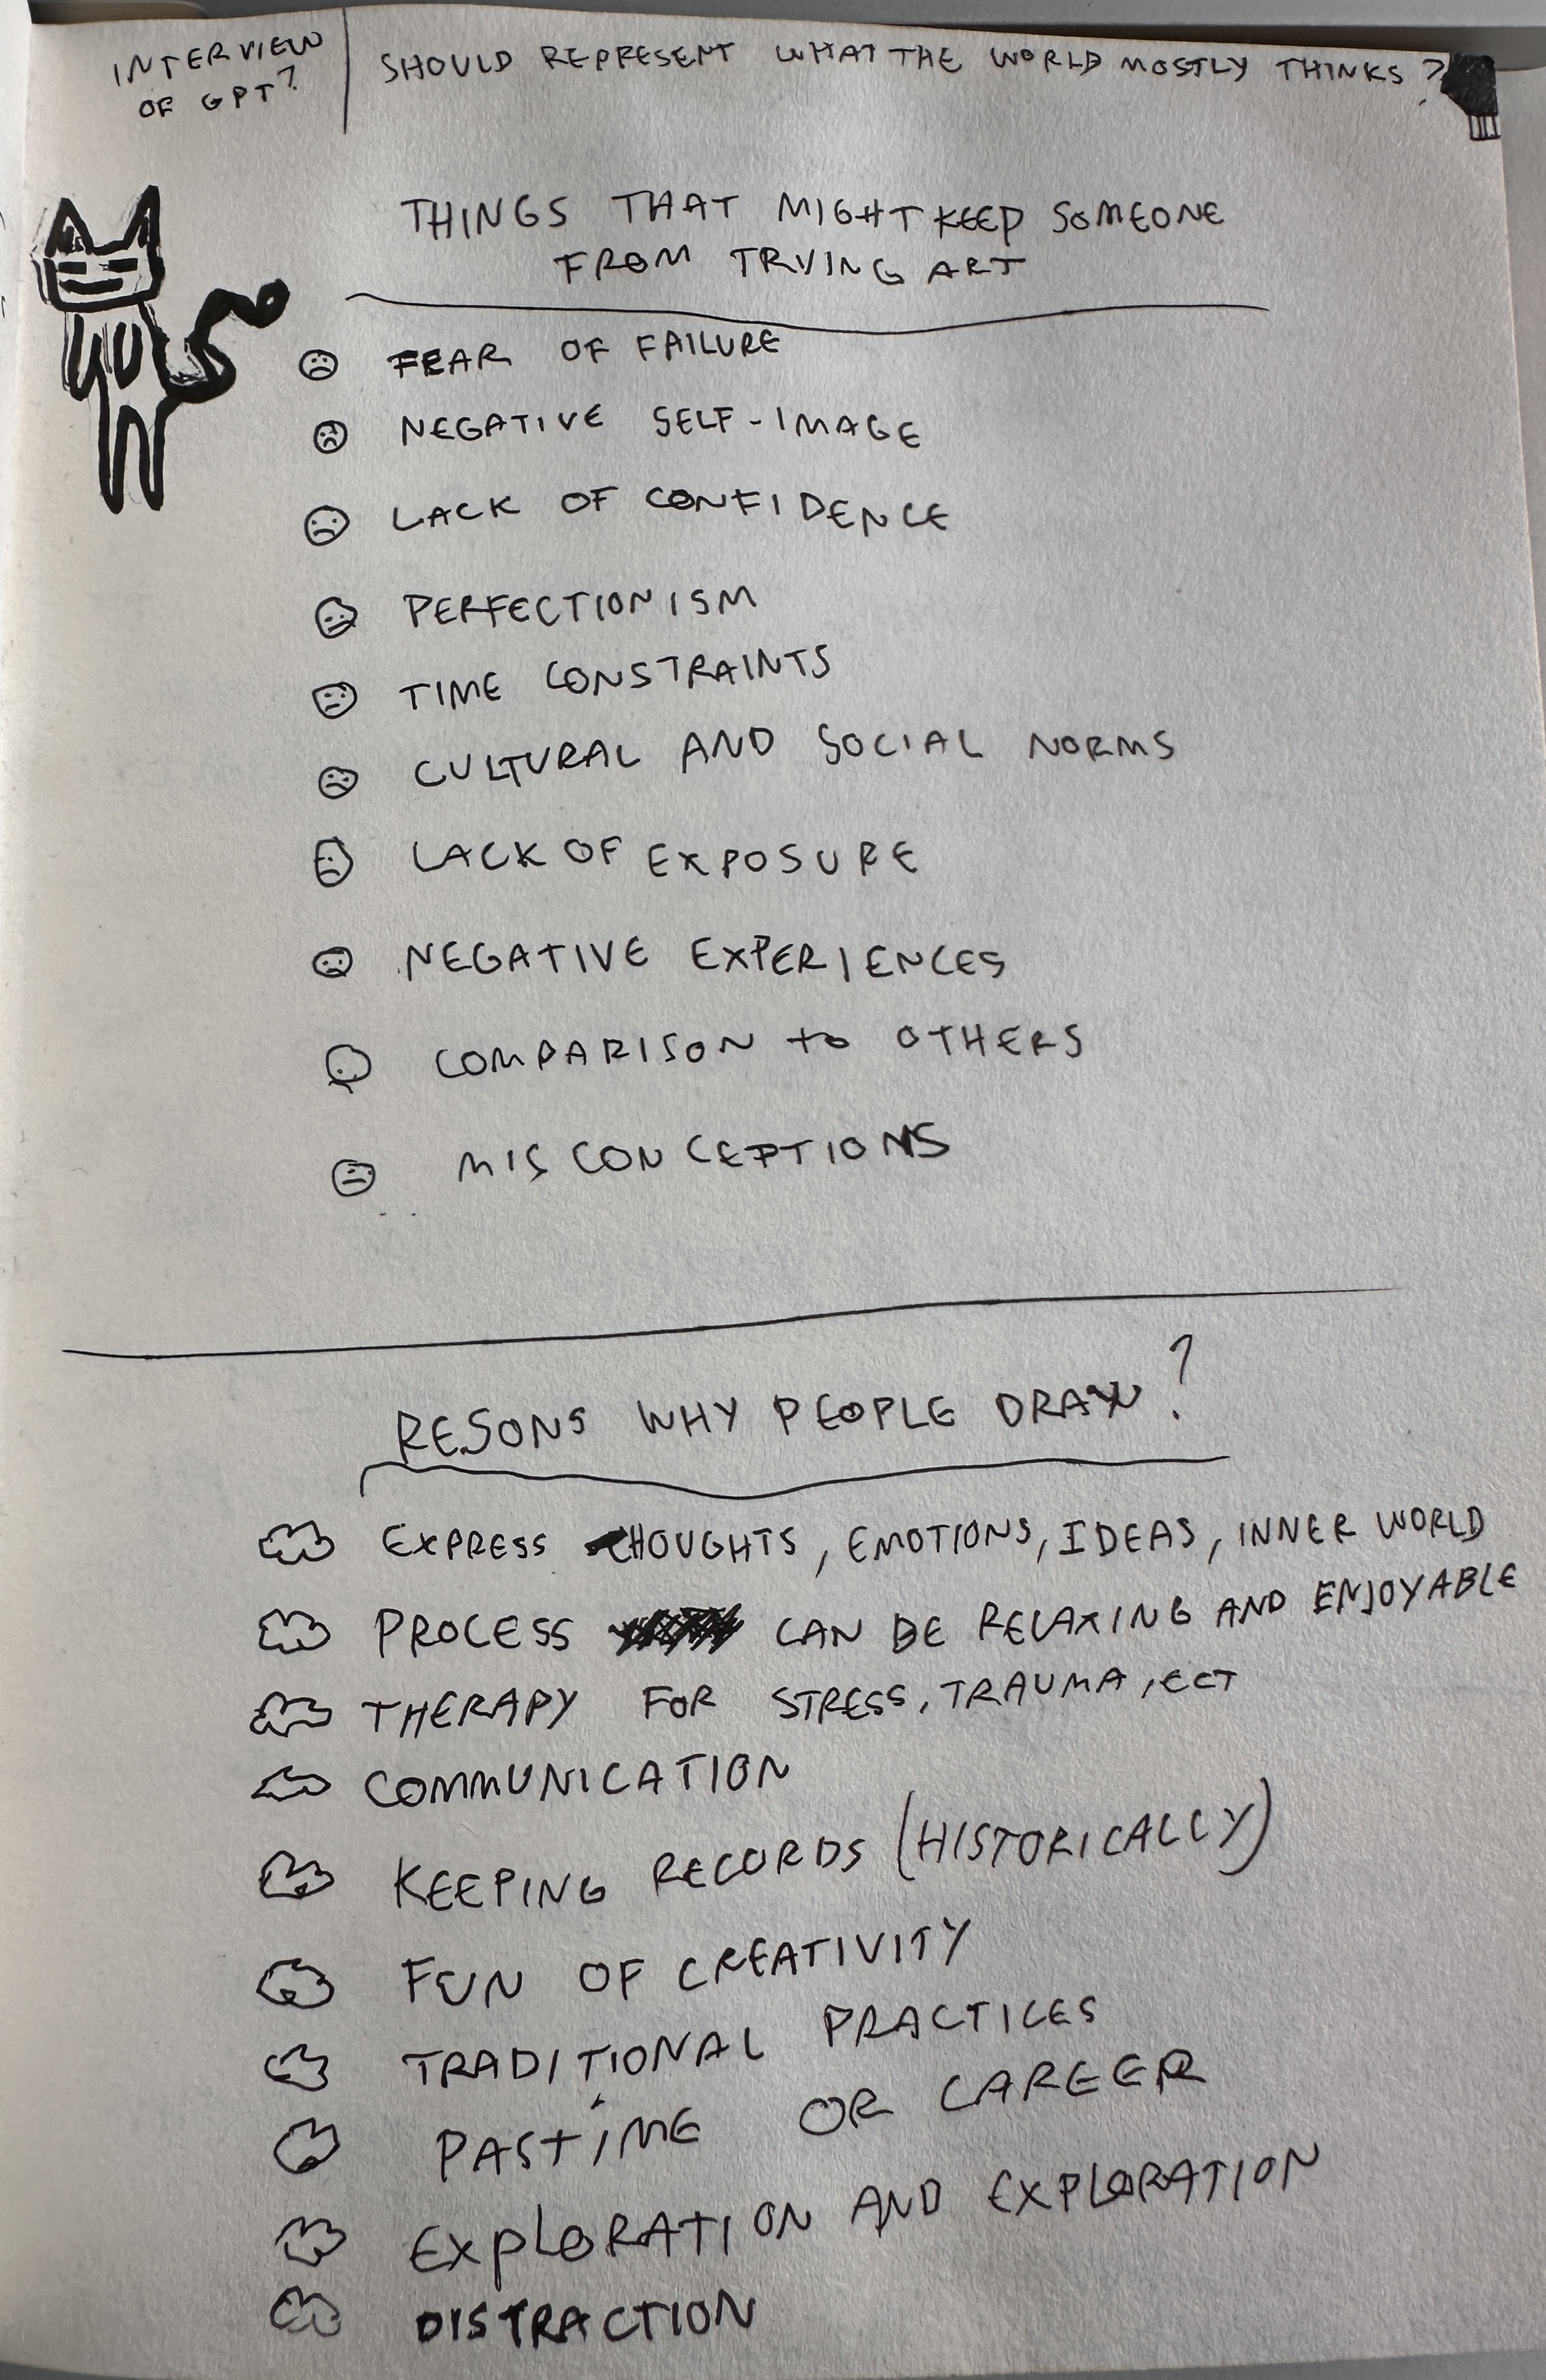 INTERVIEW
OF GPT?
SHOULD REPRESENT WHAT THE WORLD MOSTLY THINKS?
THINGS THAT MIGHT KEEP SOMEONE
FROM TRYING ART
FEAR OF FAILURE
NEGATIVE SELF-IMAGE
LACK OF CONFIDENCE
PERFECTIONISM
TIME CONSTRAINTS
CULTURAL AND SOCIAL NORMS
LACK OF EXPOSURE
NEGATIVE EXPERIENCES
COMPARISON to OTHERS
MISCONCEPTIONS
RESONS WHY PEOPLE DRAW?
EXPRESS THOUGHTS, EMOTIONS, IDEAS, INNER WORLD
PROCESS CAN BE RELAXING AND ENJOYABLE
THERAPY FOR STRESS, TRAUMA, ECT
COMMUNICATION
KEEPING RECORDS (HISTORICALLY)
FUN OF CREATIVITY
TRADITIONAL PRACTICES
PASTIME OR CAREER
EXPLORATION AND EXPLORATION
DISTRACTION